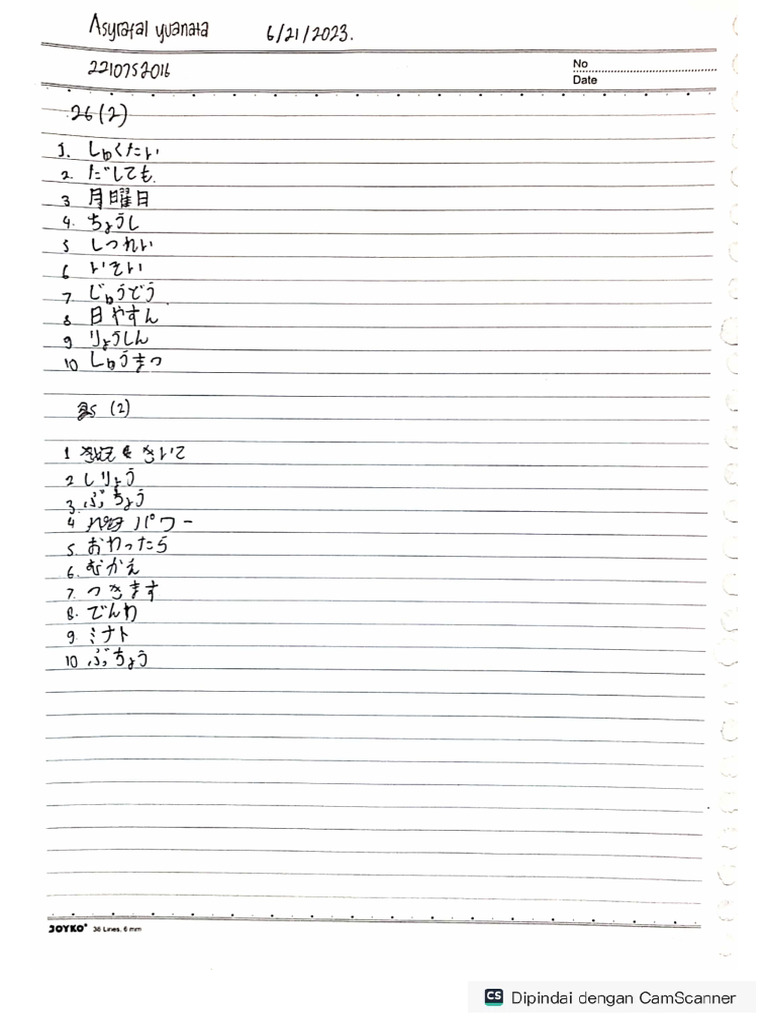 Asyrafal yuanata 6/21/2023.
2210752016
No
Date
26 (2)
1. しゅくたい
2. だしても.
3 月曜日
4. ちょうし
5 しつれい
6 いそい
7. じゅうどう
8 日やすん
9 りょうしん
10 しゅうまつ
25 (2)
1 をきいて
2 しりょう
3. ぶちょう
4 パワー
5. おわったら
6. むかえ
7. つきます
8. でんわ
9 ミナト
10 ぶちょう
JOYKO 36 Lines, 6 mm
CS Dipindai dengan CamScanner